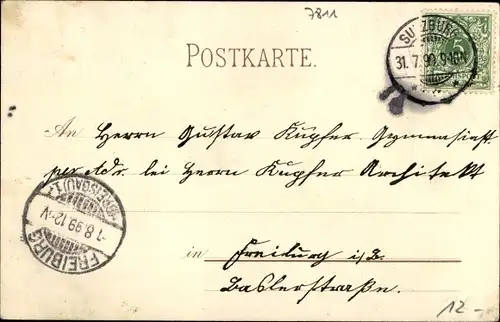 7811
POSTKARTE.
SULZBURG
31.7.99. 9-10N
5
An Herrn Gustav Kupfer Gymnasiast
per Adr. bei Herrn Kupfer Architekt
in Freiburg i/B.
Baslerstraße.
FREIBURG
1.8.99.12-V
(BREISGAU)
12-